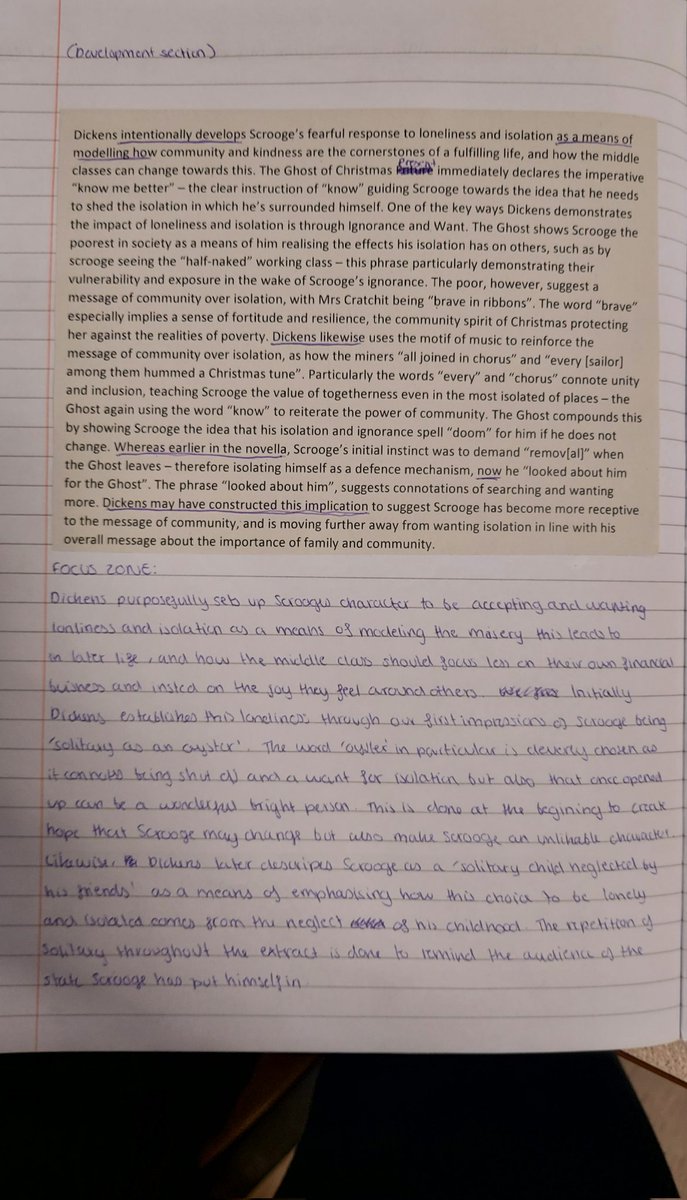 (Development section)
Dickens intentionally develops Scrooge's fearful response to loneliness and isolation as a means of
modelling how community and kindness are the cornerstones of a fulfilling life, and how the middle
classes can change towards this. The Ghost of Christmas Present immediately declares the imperative
"know me better" – the clear instruction of "know" guiding Scrooge towards the idea that he needs
to shed the isolation in which he's surrounded himself. One of the key ways Dickens demonstrates
the impact of loneliness and isolation is through Ignorance and Want. The Ghost shows Scrooge the
poorest in society as a means of him realising the effects his isolation has on others, such as by
scrooge seeing the "half-naked" working class – this phrase particularly demonstrating their
vulnerability and exposure in the wake of Scrooge's ignorance. The poor, however, suggest a
message of community over isolation, with Mrs Cratchit being "brave in ribbons". The word "brave"
especially implies a sense of fortitude and resilience, the community spirit of Christmas protecting
her against the realities of poverty. Dickens likewise uses the motif of music to reinforce the
message of community over isolation, as how the miners "all joined in chorus" and "every [sailor]
among them hummed a Christmas tune". Particularly the words "every" and "chorus" connote unity
and inclusion, teaching Scrooge the value of togetherness even in the most isolated of places – the
Ghost again using the word "know" to reiterate the power of community. The Ghost compounds this
by showing Scrooge the idea that his isolation and ignorance spell "doom" for him if he does not
change. Whereas earlier in the novella, Scrooge's initial instinct was to demand "remov[al]" when
the Ghost leaves – therefore isolating himself as a defence mechanism, now he "looked about him
for the Ghost". The phrase "looked about him", suggests connotations of searching and wanting
more. Dickens may have constructed this implication to suggest Scrooge has become more receptive
to the message of community, and is moving further away from wanting isolation in line with his
overall message about the importance of family and community.
FOCUS ZONE:
Dickens purposefully sets up Scrooges character to be accepting and wanting
lonliness and isolation as a means of modeling the misery this leads to
in later life, and how the middle class should focus less on their own financial
buisness and insted on the joy they feel around others. Initially
Dickens establishes this lonliness through our first impressions of Scrooge being
'solitary as an oyster'. The word 'oyster' in particular is cleverly chosen as
it connotes being shut off and a want for isolation but also that once opened
up can be a wonderful bright person. This is done at the begining to create
hope that Scrooge may change but also make Scrooge an unlikable character.
Likewise, Dickens later descripes Scrooge as a 'solitary child neglected by
his friends' as a means of emphasising how this choice to be lonely
and isolated comes from the neglect of his childhood. The repetition of
solitary throughout the extract is done to remind the audience of the
state Scrooge has put himself in.